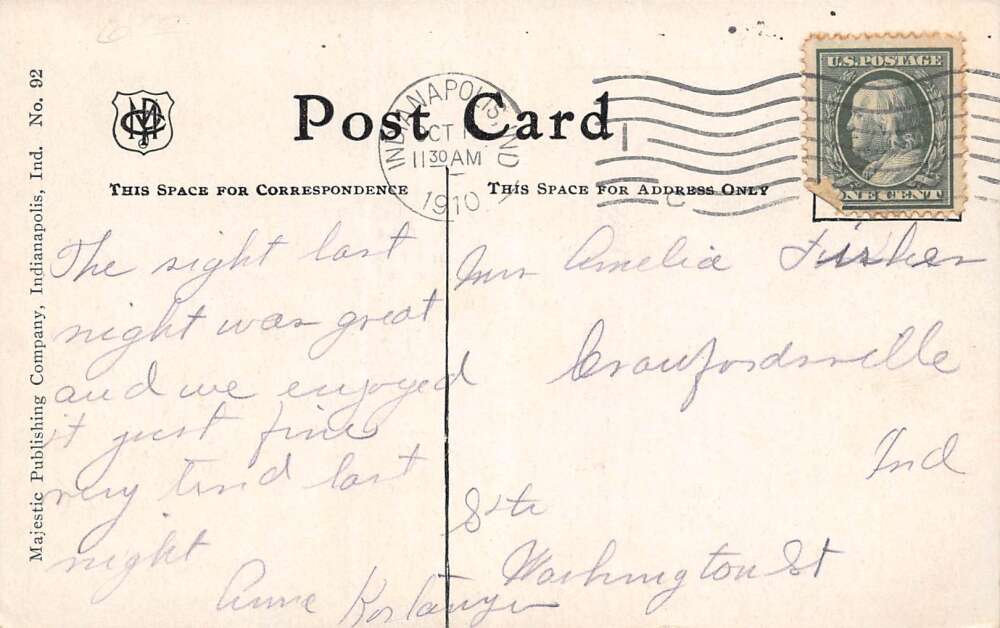 Post Card
THIS SPACE FOR CORRESPONDENCE
THIS SPACE FOR ADDRESS ONLY
Majestic Publishing Company, Indianapolis, Ind. No. 92
INDIANAPOLIS, IND
OCT 1
11 30 AM
1910
U.S. POSTAGE
ONE CENT
The sight last
night was great
and we enjoyed
it just fine
very tird last
night
Anna
Mrs Amelia
Crawfordsville
Ind
Washington St